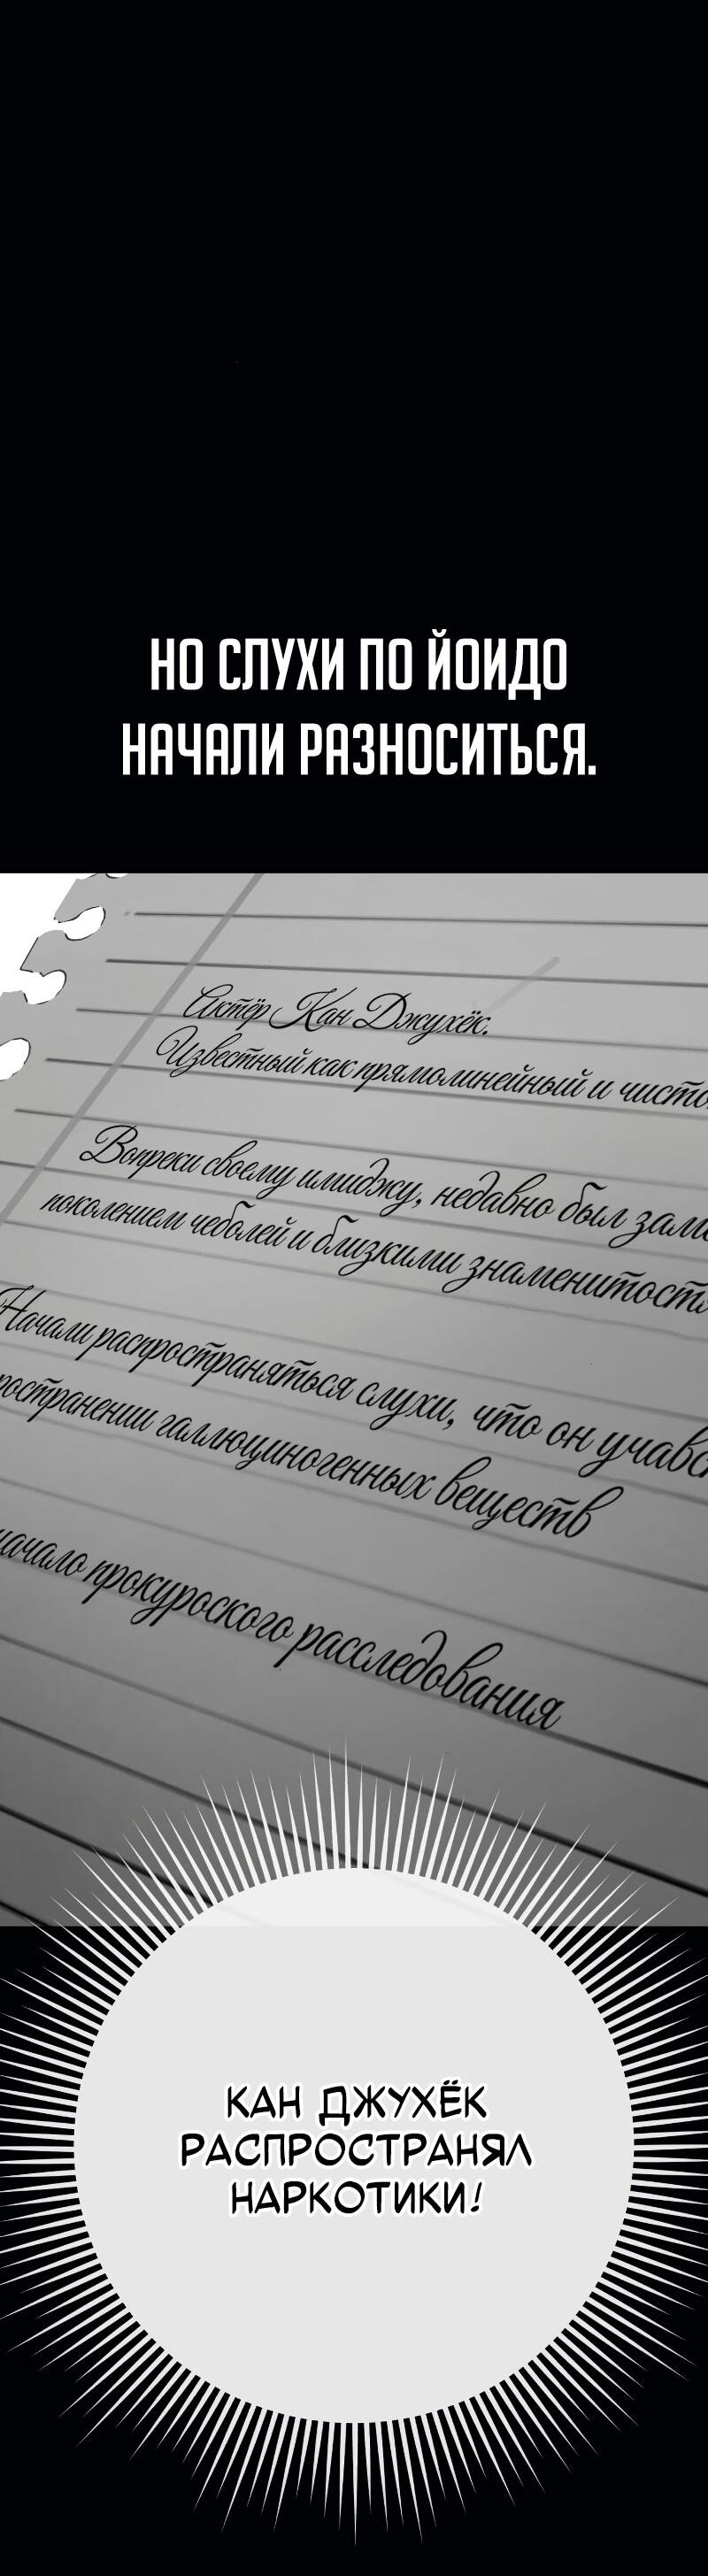 НО СЛУХИ ПО ЙОИДО
НАЧАЛИ РАЗНОСИТЬСЯ.
Актёр Кан Джухёк.
Известный как прямолинейный и чисто
Вопреки своему имиджу, недавно был заме
поколением чеболей и близкими знаменитостя
Начали распространяться слухи, что он учавс
ространении галлюциногенных веществ
начало прокуроского расследования
КАН ДЖУХЁК
РАСПРОСТРАНЯЛ
НАРКОТИКИ!